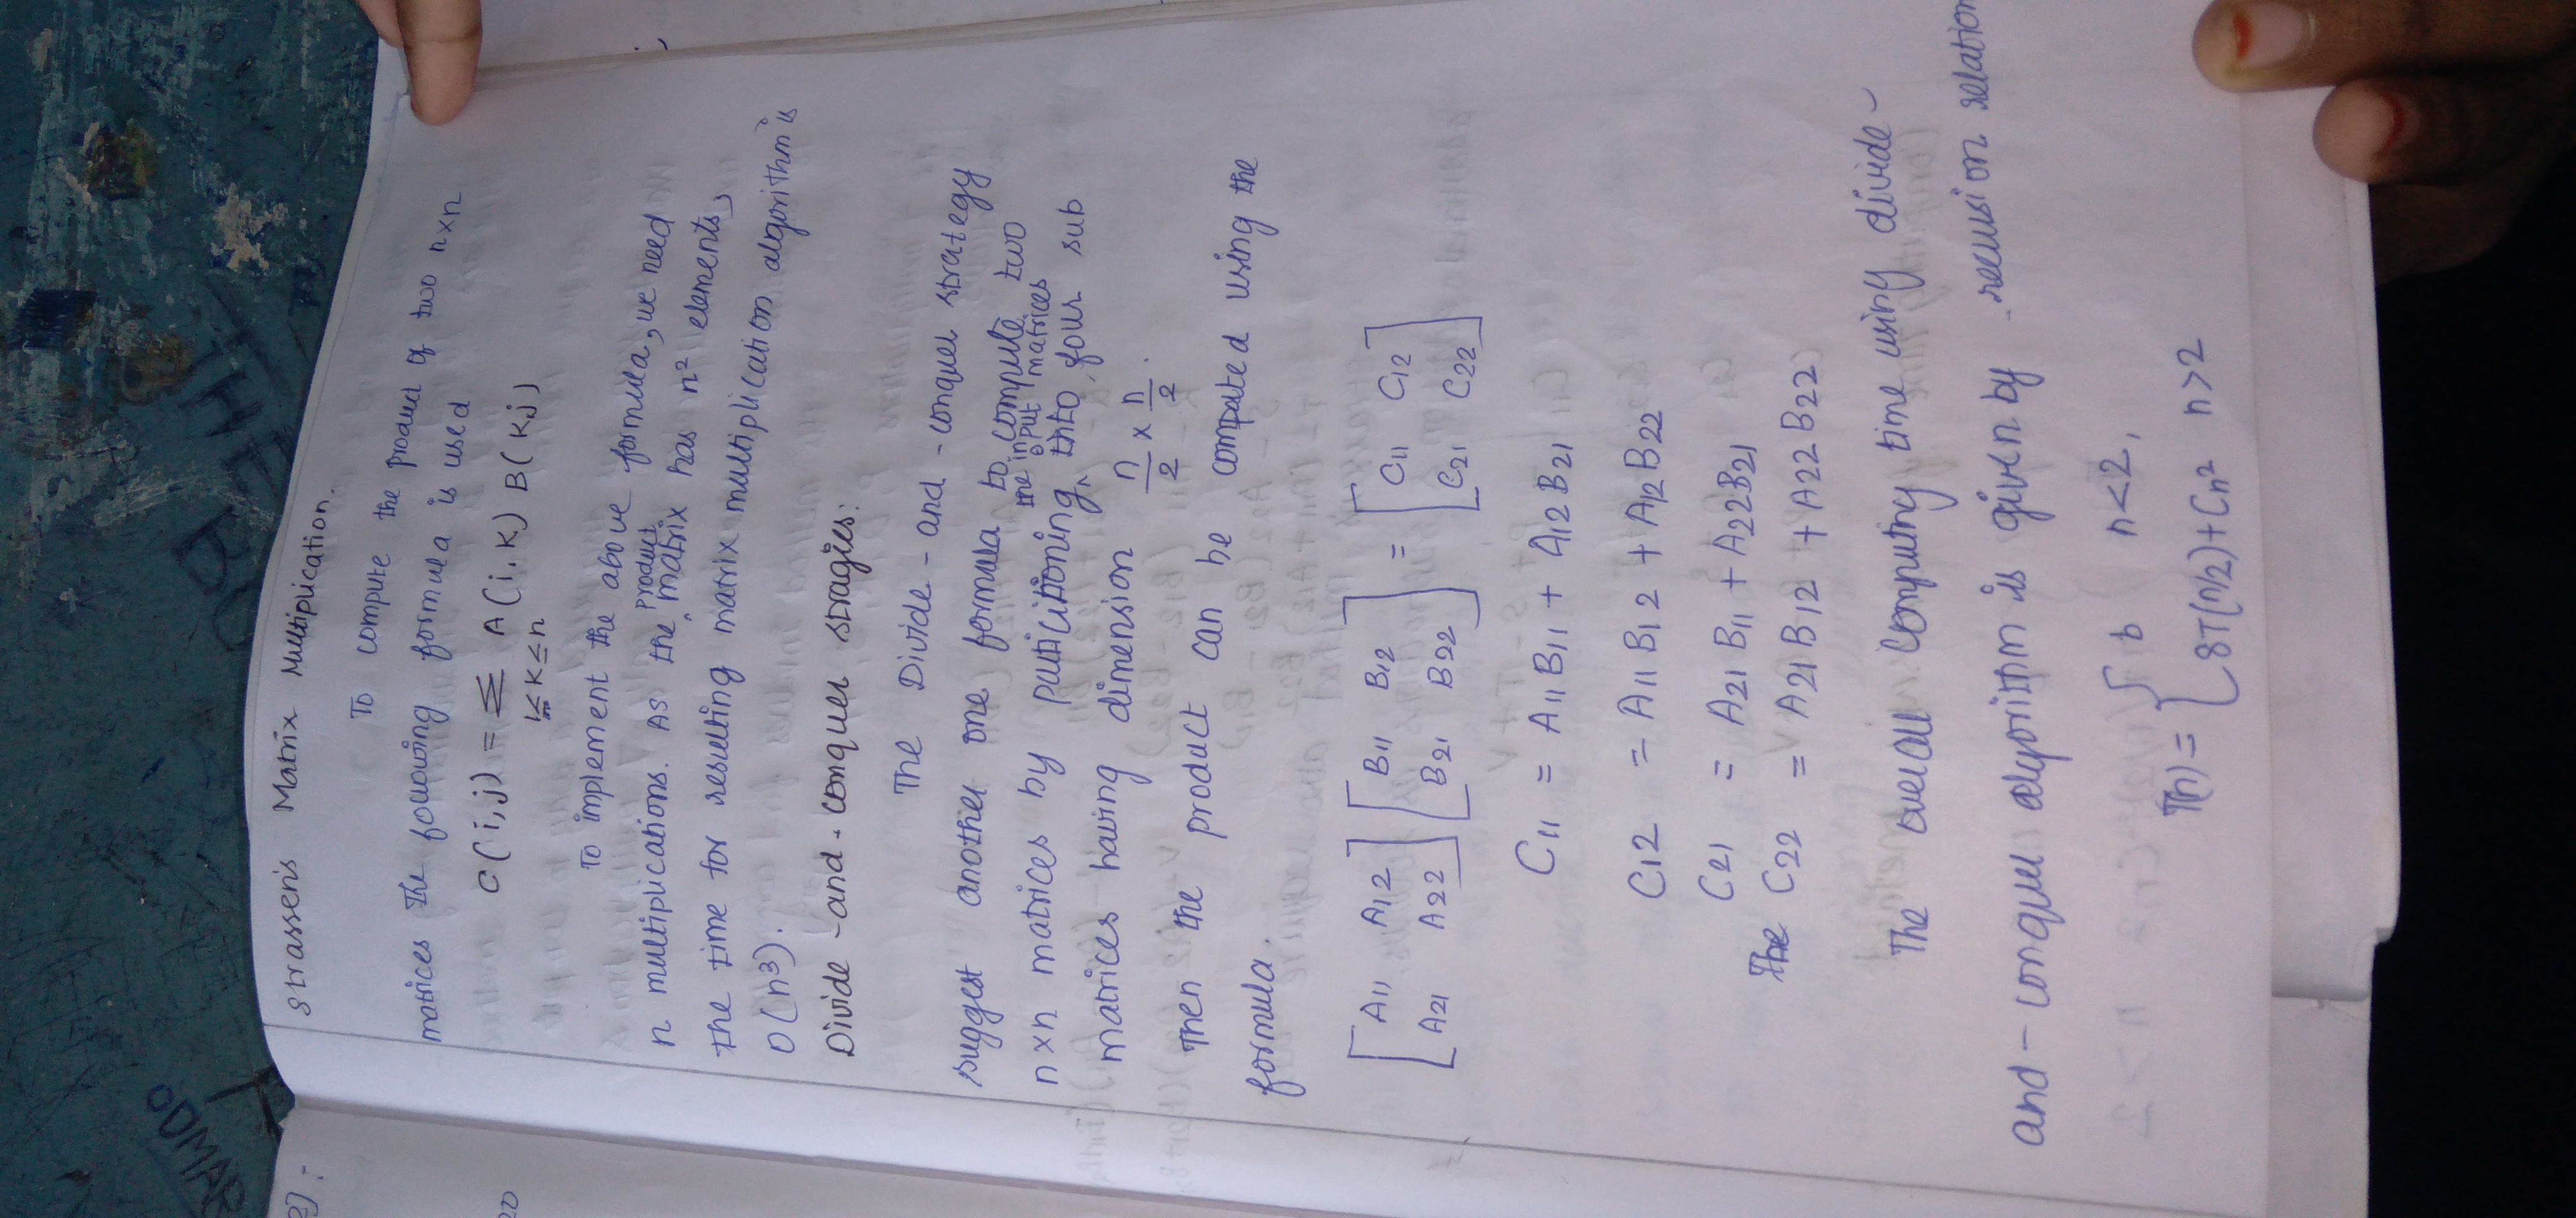 ODMAR
THE BO
e]:
20
Strassen's Matrix Multiplication.
To compute the product of two n×n
matrices The following formula is used
C(i,j) = Σ A(i,k) B(kj)
1≤k≤n
To implement the above formula, we need
n multiplications. As the product matrix has n² elements,
the time for resulting matrix multiplication algorithm is
O(n³).
Divide-and-conquer stragies:
The Divide-and-conquer strategy
suggest another one formula to compute two
n×n matrices by particitioning the input matrices into four sub
matrices having dimension n/2 × n/2.
Then the product can be computed using the
formula.
[A11 A12] [B11 B12] = [C11 C12]
[A21 A22] [B21 B22] [C21 C22]
C11 = A11B11 + A12B21
C12 = A11B12 + A12B22
C21 = A21B11 + A22B21
The C22 = A21B12 + A22B22
The overall computing time using divide-
and-conquer algorithm is given by recursion relation
T(n) = { b n<2,
8T(n/2)+Cn² n>2